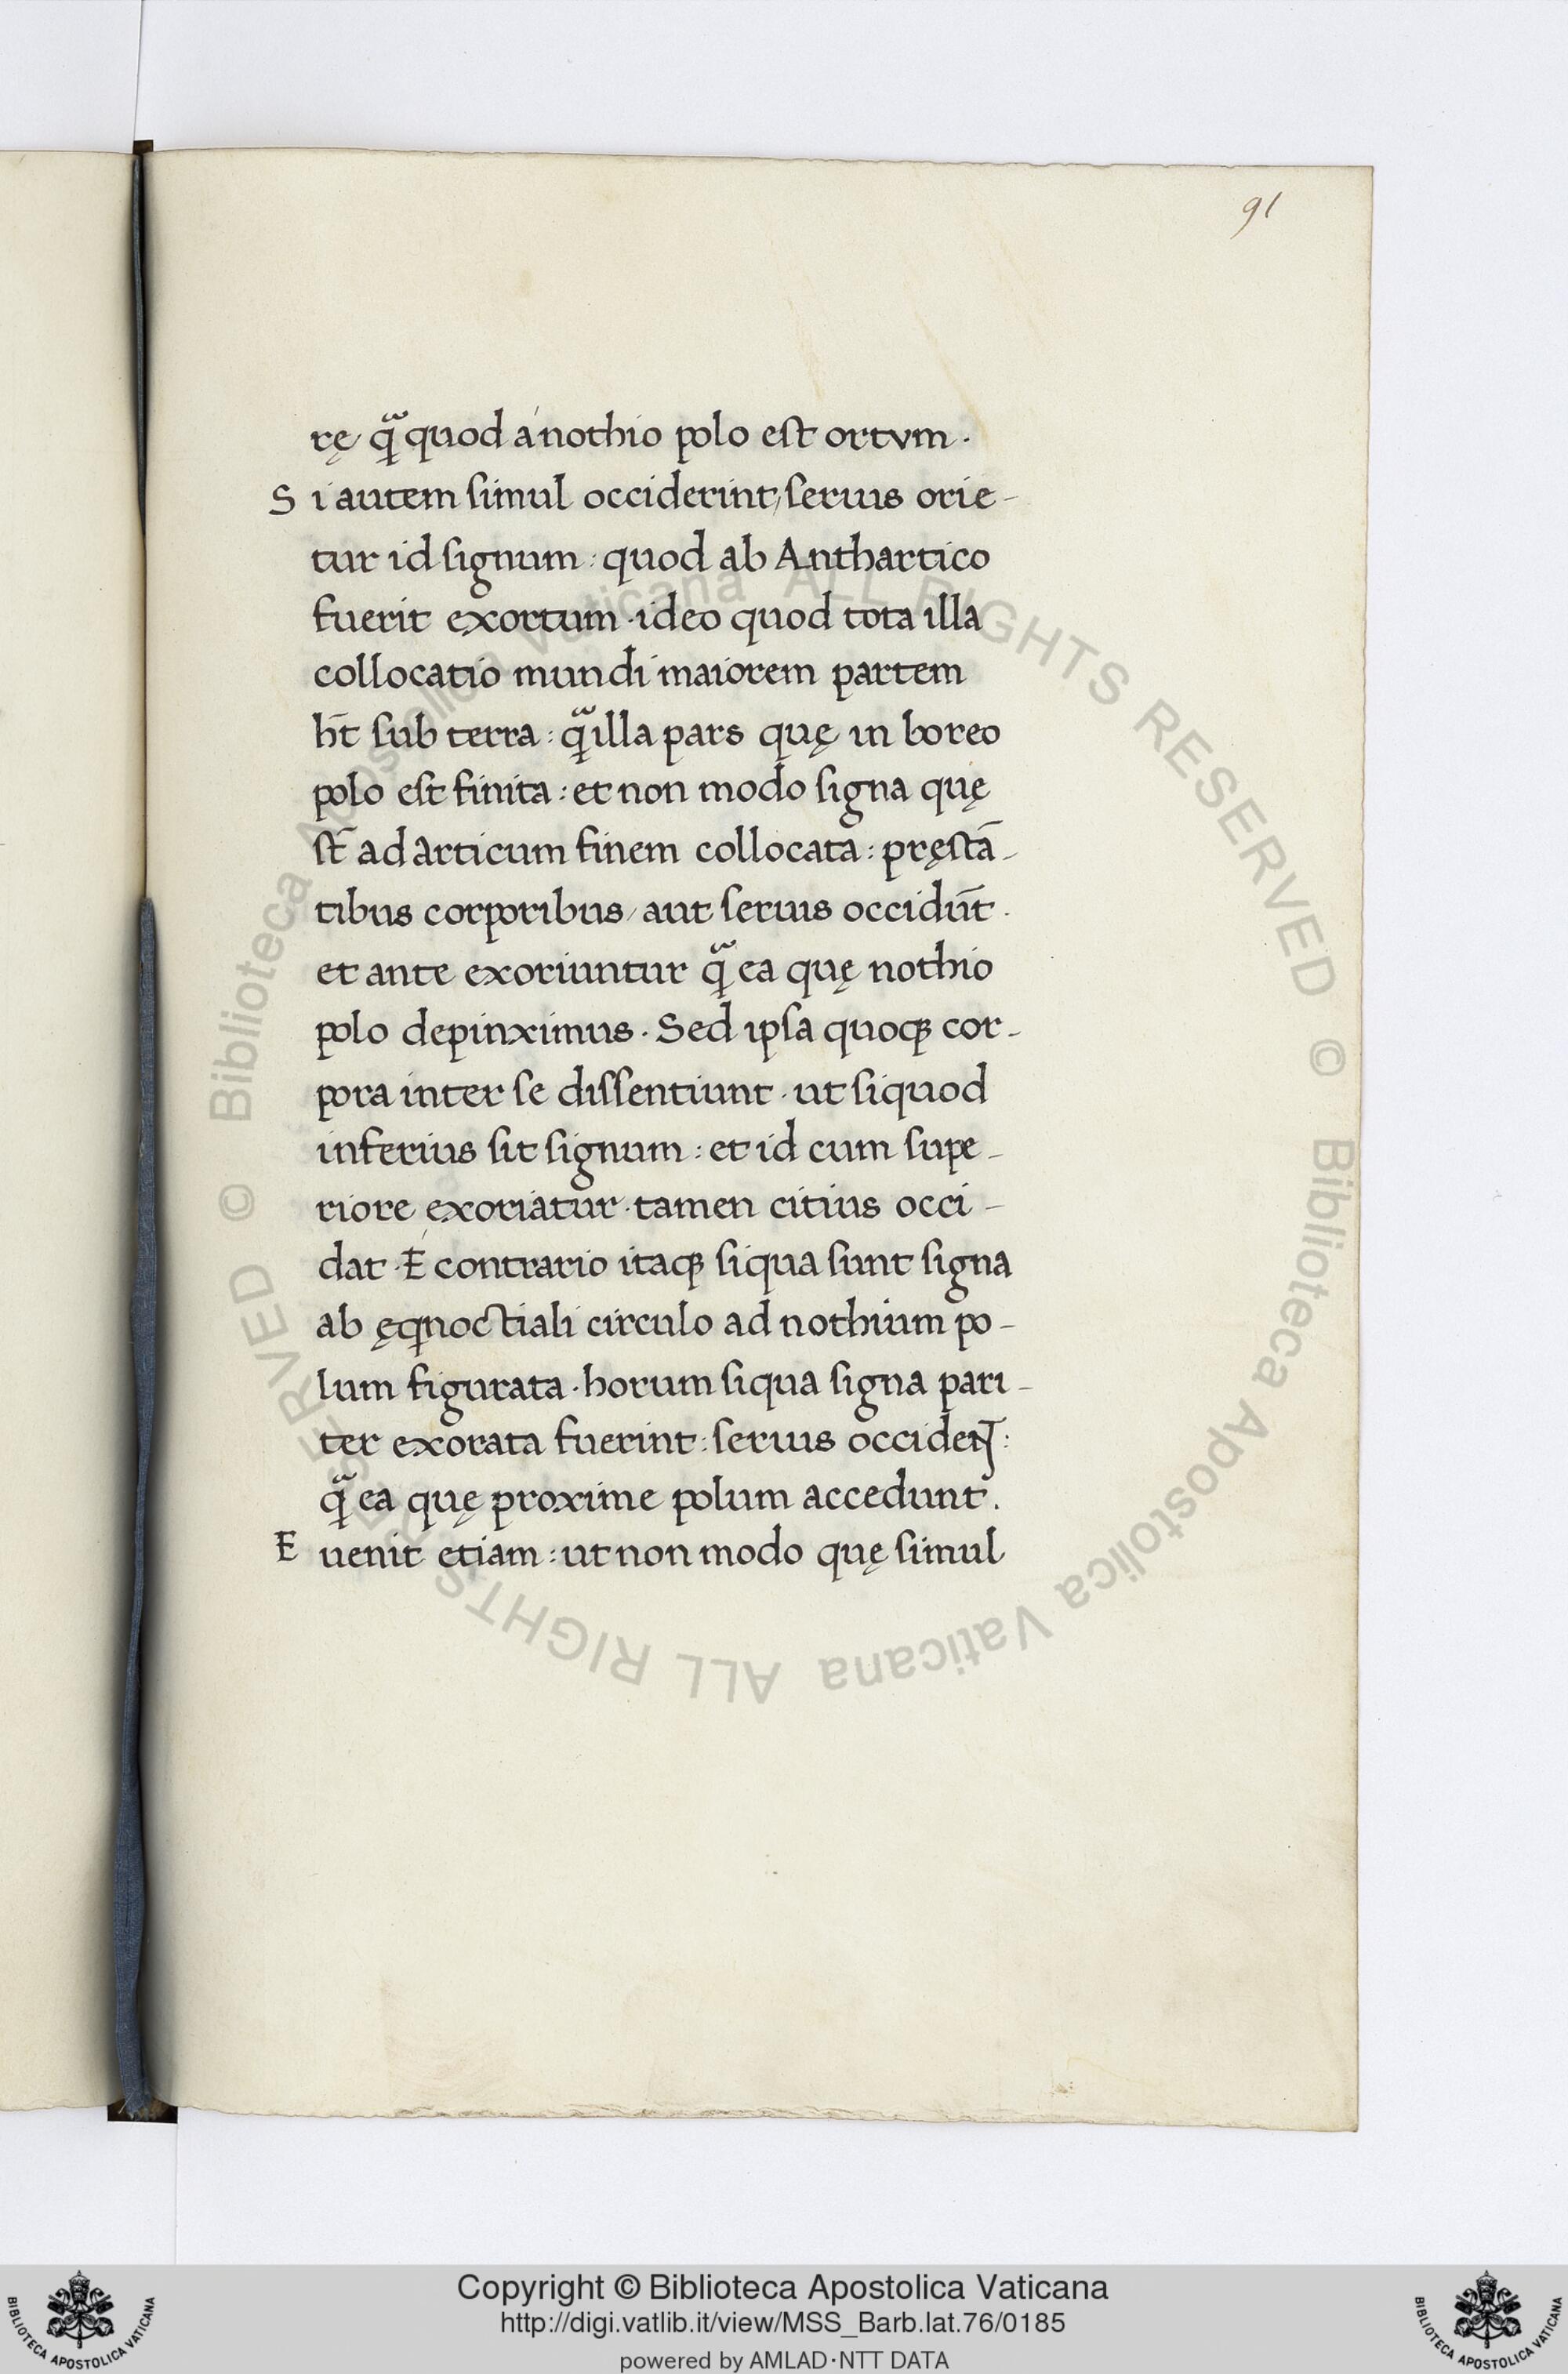 91
rę qᷓ quod á nothio polo est ortvm ·
S i autem simul occiderint, serius orie-
tur id signum : quod ab Anthartico
fuerit exortum · ideo quod tota illa
collocatio mundi maiorem partem
ht̄ sub terra : qᷓ illa pars quę in boreo
polo est finita : et non modo signa quę
st̄ ad articum finem collocata : pręstā-
tibus corporibus, aut serius occidūt ·
et ante exoriuntur qᷓ ea quę nothio
polo depinximus · Sed ipsa quoqꝫ cor-
pora inter se dissentiunt · ut siquod
inferius sit signum : et id cum supe-
riore exoriatur · tamen citius occi-
dat · É contrario itaqꝫ siqua sunt signa
ab ęqnoctiali circulo ad nothium po-
lum figurata · horum siqua signa pari-
ter exorata fuerint : serius occident :
qᷓ ea quę proxime polum accedunt .
E uenit etiam : ut non modo quę simul
© Biblioteca Apostolica Vaticana ALL RIGHTS RESERVED © Biblioteca Apostolica Vaticana ALL RIGHTS RESERVED
Copyright © Biblioteca Apostolica Vaticana
http://digi.vatlib.it/view/MSS_Barb.lat.76/0185
powered by AMLAD·NTT DATA
BIBLIOTECA APOSTOLICA VATICANA
BIBLIOTECA APOSTOLICA VATICANA